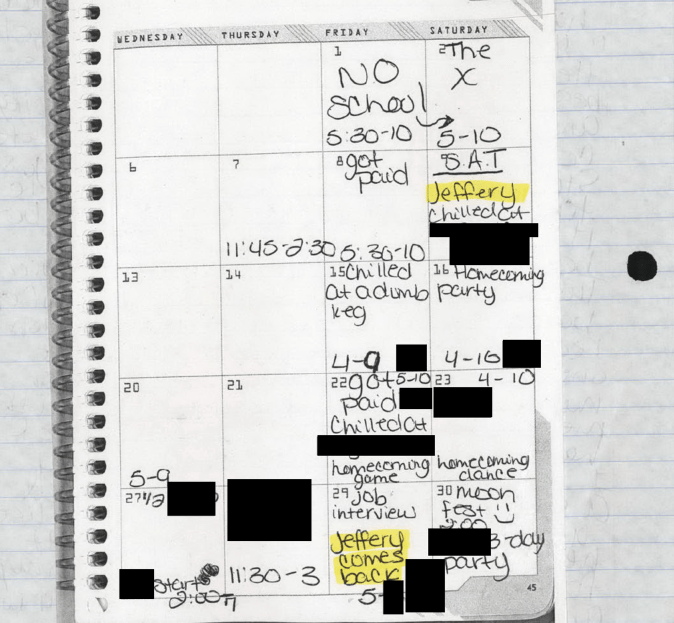 WEDNESDAY THURSDAY FRIDAY SATURDAY
1
NO
School
5:30-10
2 The
X
5-10
6
7
11:45-2:30
8 got
paid
5:30-10
S.A.T
Jeffery
chilled at
13
14
15 Chilled
at a dumb
keg
4-9
16 Homecoming
party
4-10
20
5-9
21
22 got 5-10
paid
Chilled at
homecoming
game
23 4-10
homecoming
dance
27
start
2:00-7
11:30-3
29 job
interview
Jeffery
comes
back
5-
30 moon
fest
2:00
3-day
party
45